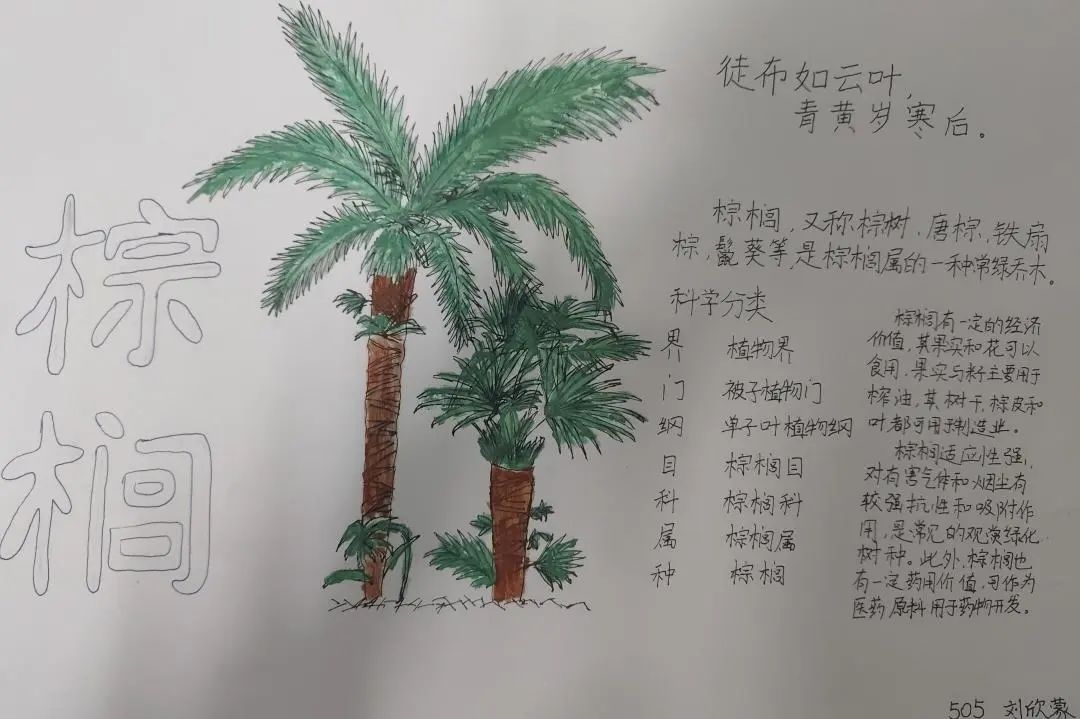 棕
榈
徒布如云叶,
青黄岁寒后。
棕榈,又称棕树,唐棕,铁扇
棕,鬣葵等,是棕榈属的一种常绿乔木。
科学分类
界 植物界
门 被子植物门
纲 单子叶植物纲
目 棕榈目
科 棕榈科
属 棕榈属
种 棕榈
棕榈有一定的经济
价值,其果实和花可以
食用,果实与籽主要用于
榨油,其树干,棕皮和
叶都可用于制造业。
棕榈适应性强,
对有害气体和烟尘有
较强抗性和吸附作
用,是常见的观赏绿化
树种。此外,棕榈也
有一定药用价值,可作为
医药原料用于药物开发。
505 刘欣蒙